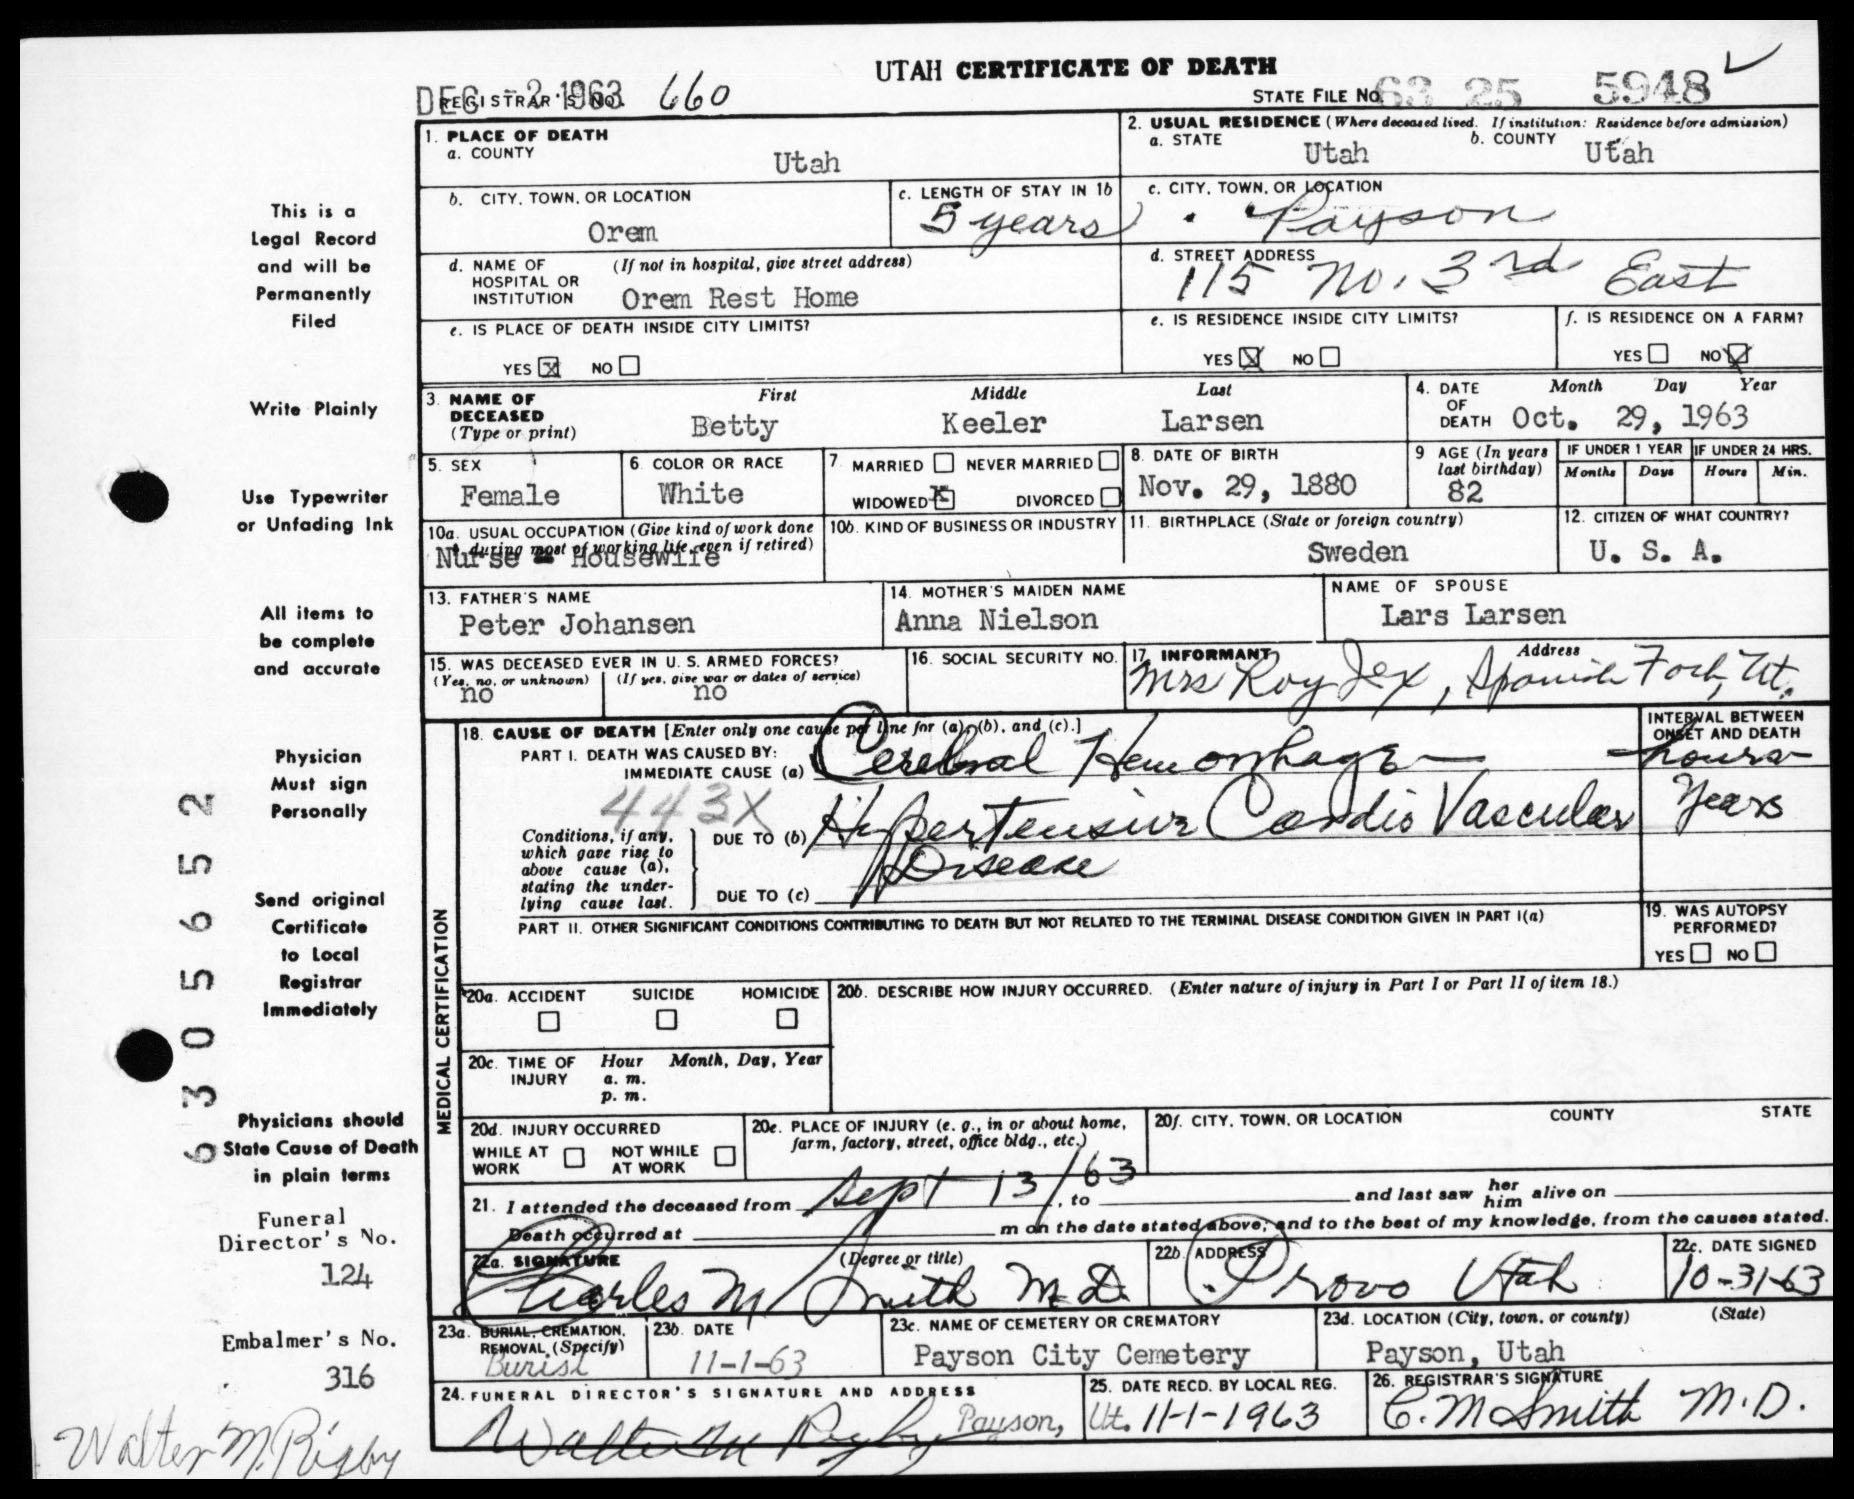 UTAH CERTIFICATE OF DEATH
DEC -2 1963 REGISTRAR'S NO. 660
STATE FILE NO. 63 25 5948
1. PLACE OF DEATH
a. COUNTY
Utah
2. USUAL RESIDENCE (Where deceased lived. If institution: Residence before admission)
a. STATE Utah b. COUNTY Utah
b. CITY, TOWN, OR LOCATION
Orem
c. LENGTH OF STAY IN 1b
5 years
c. CITY, TOWN, OR LOCATION
Payson
d. NAME OF HOSPITAL OR INSTITUTION (If not in hospital, give street address)
Orem Rest Home
d. STREET ADDRESS
115 No. 3rd East
e. IS PLACE OF DEATH INSIDE CITY LIMITS?
YES X NO
e. IS RESIDENCE INSIDE CITY LIMITS?
YES X NO
f. IS RESIDENCE ON A FARM?
YES NO X
3. NAME OF DECEASED (Type or print)
First Middle Last
Betty Keeler Larsen
4. DATE OF DEATH Month Day Year
Oct. 29, 1963
5. SEX
Female
6. COLOR OR RACE
White
7. MARRIED NEVER MARRIED
WIDOWED X DIVORCED
8. DATE OF BIRTH
Nov. 29, 1880
9 AGE (In years last birthday)
82
IF UNDER 1 YEAR
Months Days
IF UNDER 24 HRS.
Hours Min.
10a. USUAL OCCUPATION (Give kind of work done during most of working life, even if retired)
Nurse - Housewife
10b. KIND OF BUSINESS OR INDUSTRY
11. BIRTHPLACE (State or foreign country)
Sweden
12. CITIZEN OF WHAT COUNTRY?
U. S. A.
13. FATHER'S NAME
Peter Johansen
14. MOTHER'S MAIDEN NAME
Anna Nielson
NAME OF SPOUSE
Lars Larsen
15. WAS DECEASED EVER IN U. S. ARMED FORCES?
(Yes, no, or unknown) (If yes, give war or dates of service)
no no
16. SOCIAL SECURITY NO.
17. INFORMANT Address
Mrs Roy Jex, Spanish Fork, Ut.
18. CAUSE OF DEATH [Enter only one cause per line for (a), (b), and (c).]
PART I. DEATH WAS CAUSED BY:
IMMEDIATE CAUSE (a) Cerebral Hemorrhage
INTERVAL BETWEEN ONSET AND DEATH
hours
443X
Conditions, if any, which gave rise to above cause (a), stating the underlying cause last.
DUE TO (b) Hypertensive Cardio Vascular Disease
Years
DUE TO (c)
PART II. OTHER SIGNIFICANT CONDITIONS CONTRIBUTING TO DEATH BUT NOT RELATED TO THE TERMINAL DISEASE CONDITION GIVEN IN PART I(a)
19. WAS AUTOPSY PERFORMED?
YES NO
MEDICAL CERTIFICATION
20a. ACCIDENT SUICIDE HOMICIDE
20b. DESCRIBE HOW INJURY OCCURRED. (Enter nature of injury in Part I or Part II of item 18.)
20c. TIME OF INJURY Hour Month, Day, Year
a. m.
p. m.
20d. INJURY OCCURRED
WHILE AT WORK NOT WHILE AT WORK
20e. PLACE OF INJURY (e. g., in or about home, farm, factory, street, office bldg., etc.)
20f. CITY, TOWN, OR LOCATION COUNTY STATE
21. I attended the deceased from Sept 13/63, to and last saw her him alive on
Death occurred at m on the date stated above; and to the best of my knowledge, from the causes stated.
22a. SIGNATURE (Degree or title)
Charles M Smith M.D.
22b. ADDRESS
Provo Utah
22c. DATE SIGNED
10-31-63
23a. BURIAL, CREMATION, REMOVAL (Specify)
Burial
23b. DATE
11-1-63
23c. NAME OF CEMETERY OR CREMATORY
Payson City Cemetery
23d. LOCATION (City, town, or county) (State)
Payson, Utah
24. FUNERAL DIRECTOR'S SIGNATURE AND ADDRESS
Walter M Rigby Payson, Ut.
25. DATE RECD. BY LOCAL REG.
11-1-1963
26. REGISTRAR'S SIGNATURE
C. M Smith M.D.
This is a
Legal Record
and will be
Permanently
Filed
Write Plainly
Use Typewriter
or Unfading Ink
All items to
be complete
and accurate
Physician
Must sign
Personally
Send original
Certificate
to Local
Registrar
Immediately
Physicians should
State Cause of Death
in plain terms
Funeral
Director's No.
124
Embalmer's No.
316
Walter M. Rigby
63 05652